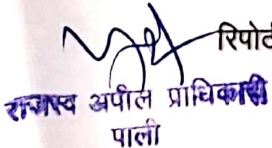 रिपोर्ट
राजस्व अपील प्राधिकारी
पाली